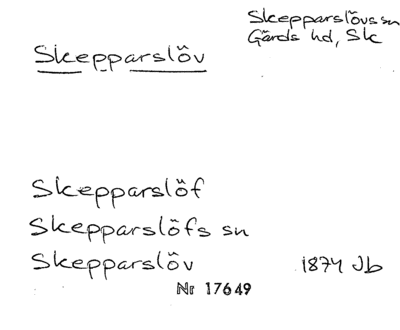 Skepparslövs sn
Gärds hd, Sk
Skepparslöv
Skepparslöf
Skepparslöfs sn
Skepparslöv 1874 Jb
Nr 17649